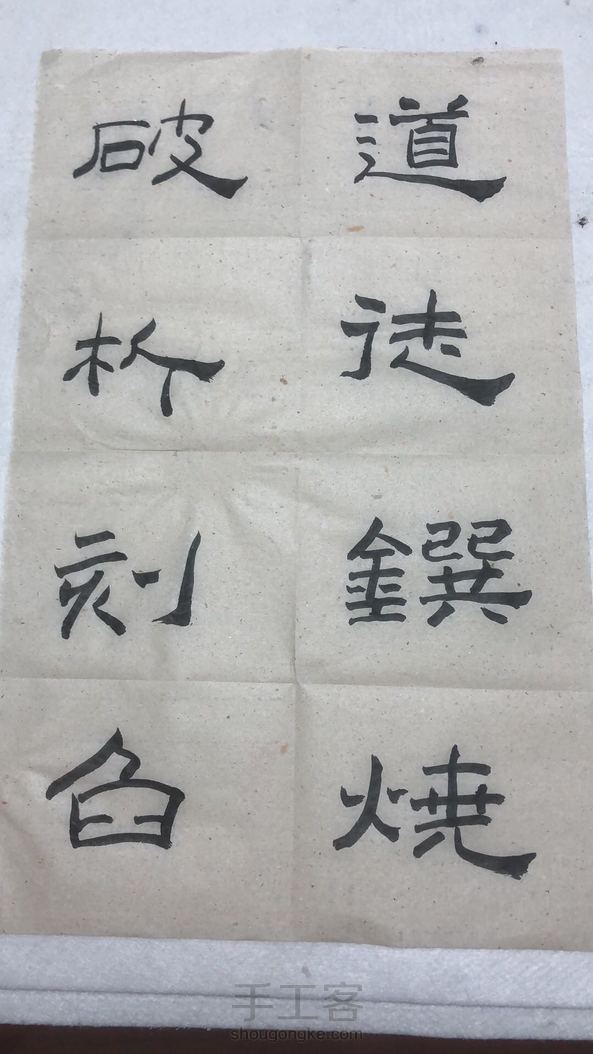 道徒鐉燒
破析刻臽
手工客
shougongke.com